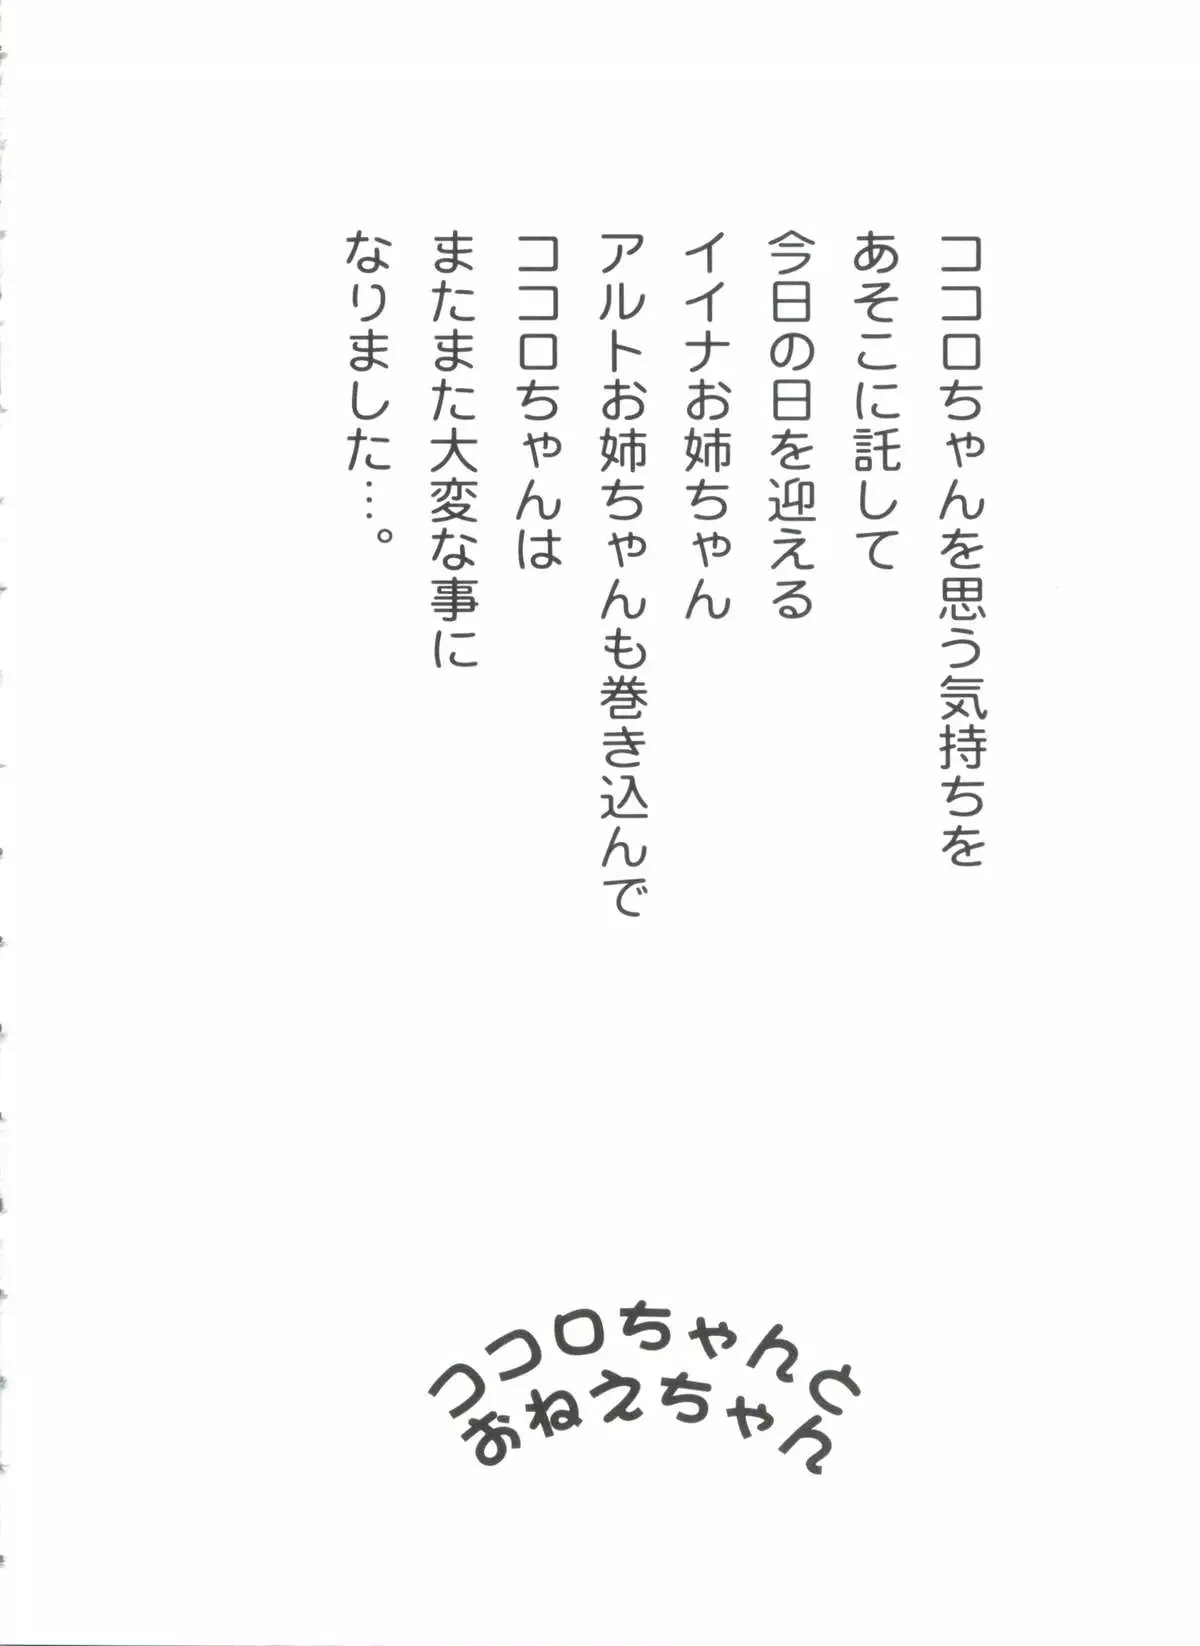 ココロちゃんを思う気持ちを
あそこに託して
今日の日を迎える
イイナお姉ちゃん
アルトお姉ちゃんも巻き込んで
ココロちゃんは
またまた大変な事に
なりました…。
ココロちゃんと
おねえちゃん